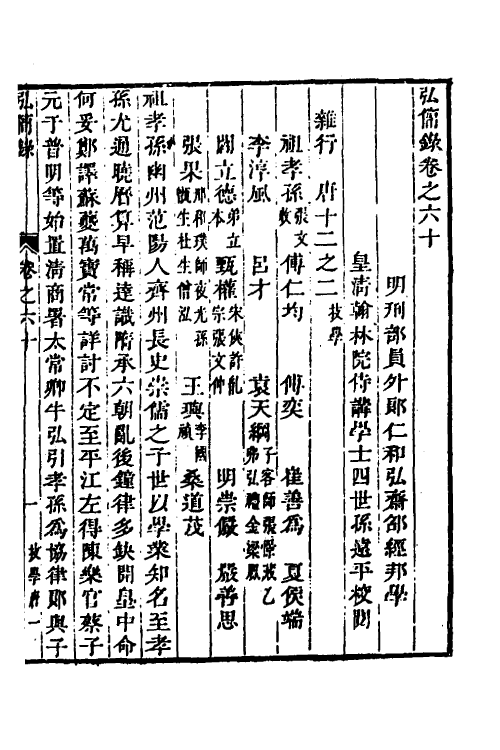 弘簡錄卷之六十
明刑部員外郎仁和弘齋邵經邦學
皇清翰林院侍講學士四世孫遠平校閱
雜行 唐十二之二 技學
祖孝孫 張文收 傅仁均 傅奕 崔善為 夏侯端
李淳風 呂才 袁天綱 子客師 張憬藏 乙弗弘禮 金梁鳳
閻立德 弟立本 甄權 宋俠 許胤宗 張文仲 明崇儼 嚴善思
張果 邢和璞 師夜光 孫甑生 杜生 僧泓 王璵 李國禎 桑道茂
祖孝孫幽州范陽人齊州長史崇儒之子世以學業知名至孝
孫尤通曉曆算早稱達識隋承六朝亂後鐘律多缺開皇中命
何妥鄭譯蘇夔萬寶常等詳討不定至平江左得陳樂官蔡子
元于普明等始置清商署太常卿牛弘引孝孫為協律郎與子
弘簡錄 卷之六十 一 技學唐一